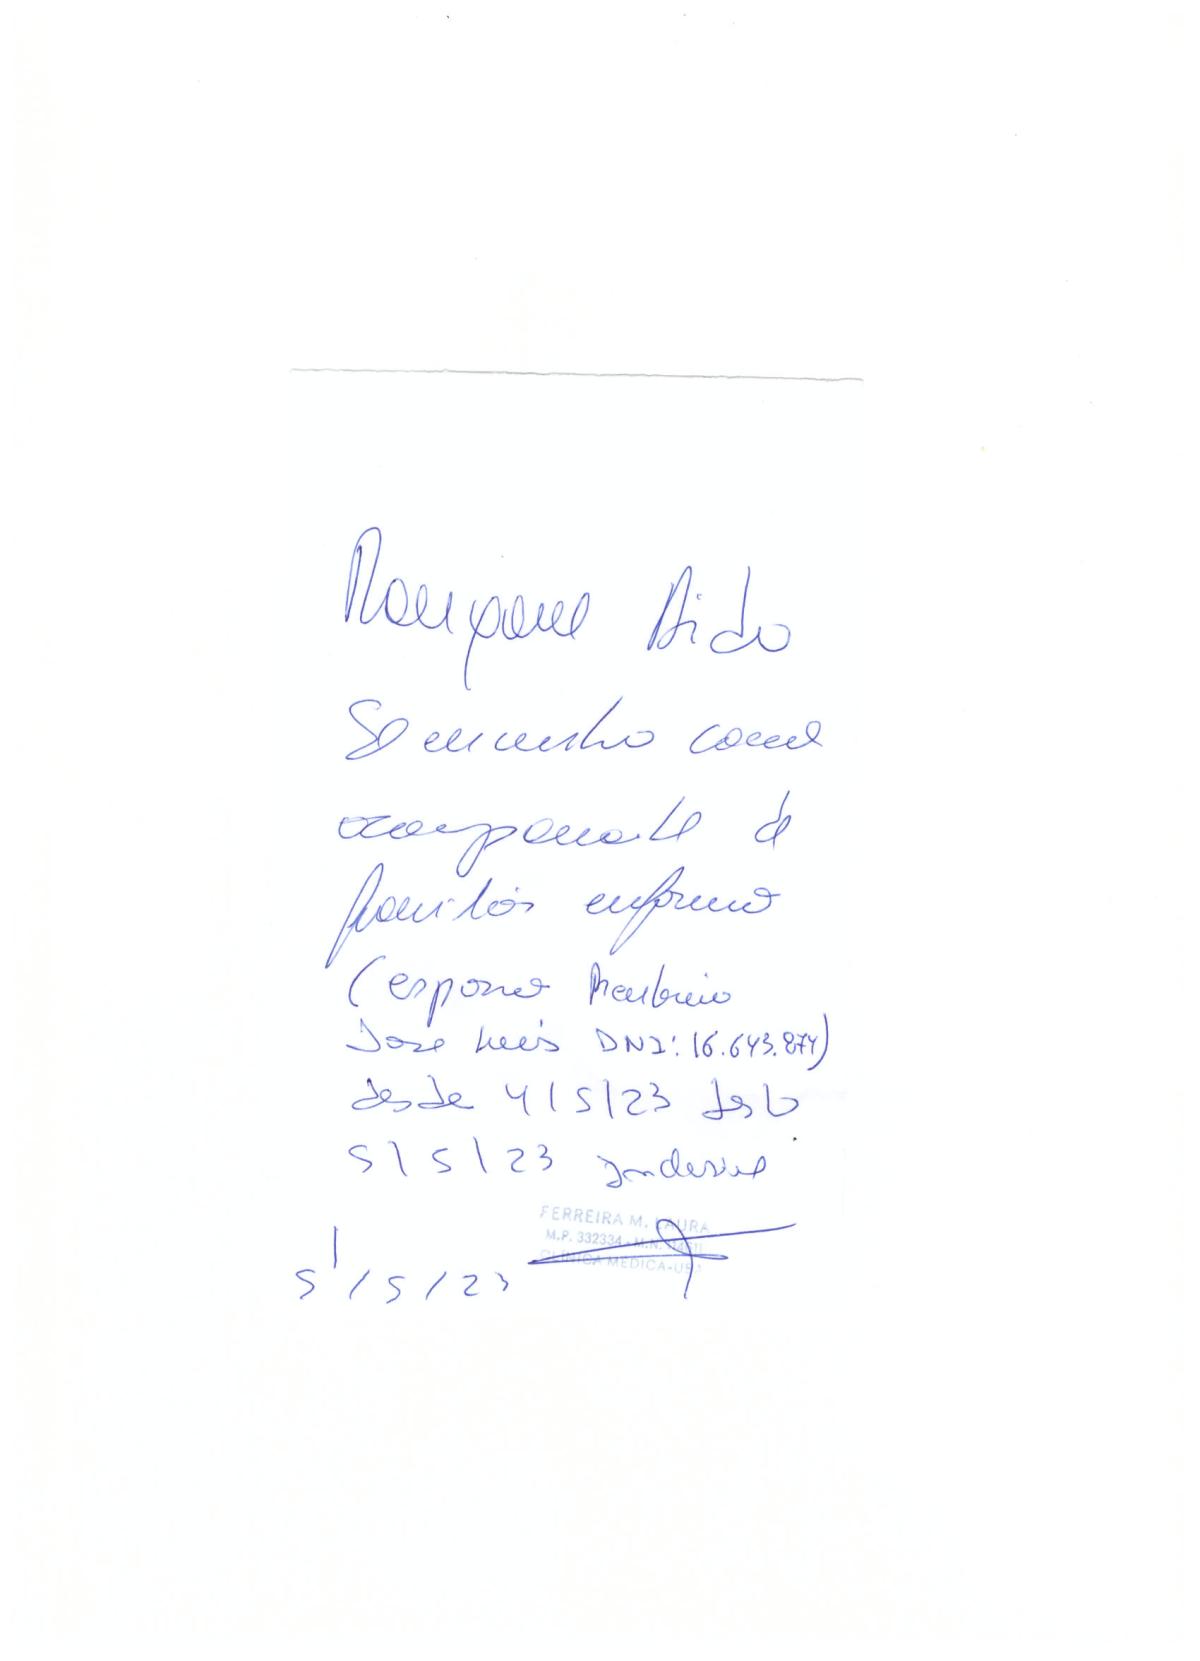 Se encuentra como
acompañante de
familiar enfermo
(esposo
José Luis DNI: 16.643.874)
desde 4/5/23 hasta
5/5/23 inclusive
FERREIRA M. LAURA
M.P. 332334 - M.N.
CLINICA MEDICA-UBA
5/5/23